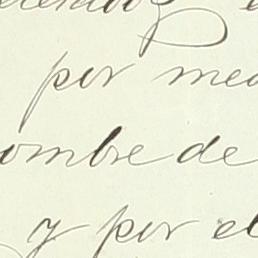 por med
ombre de
y por el